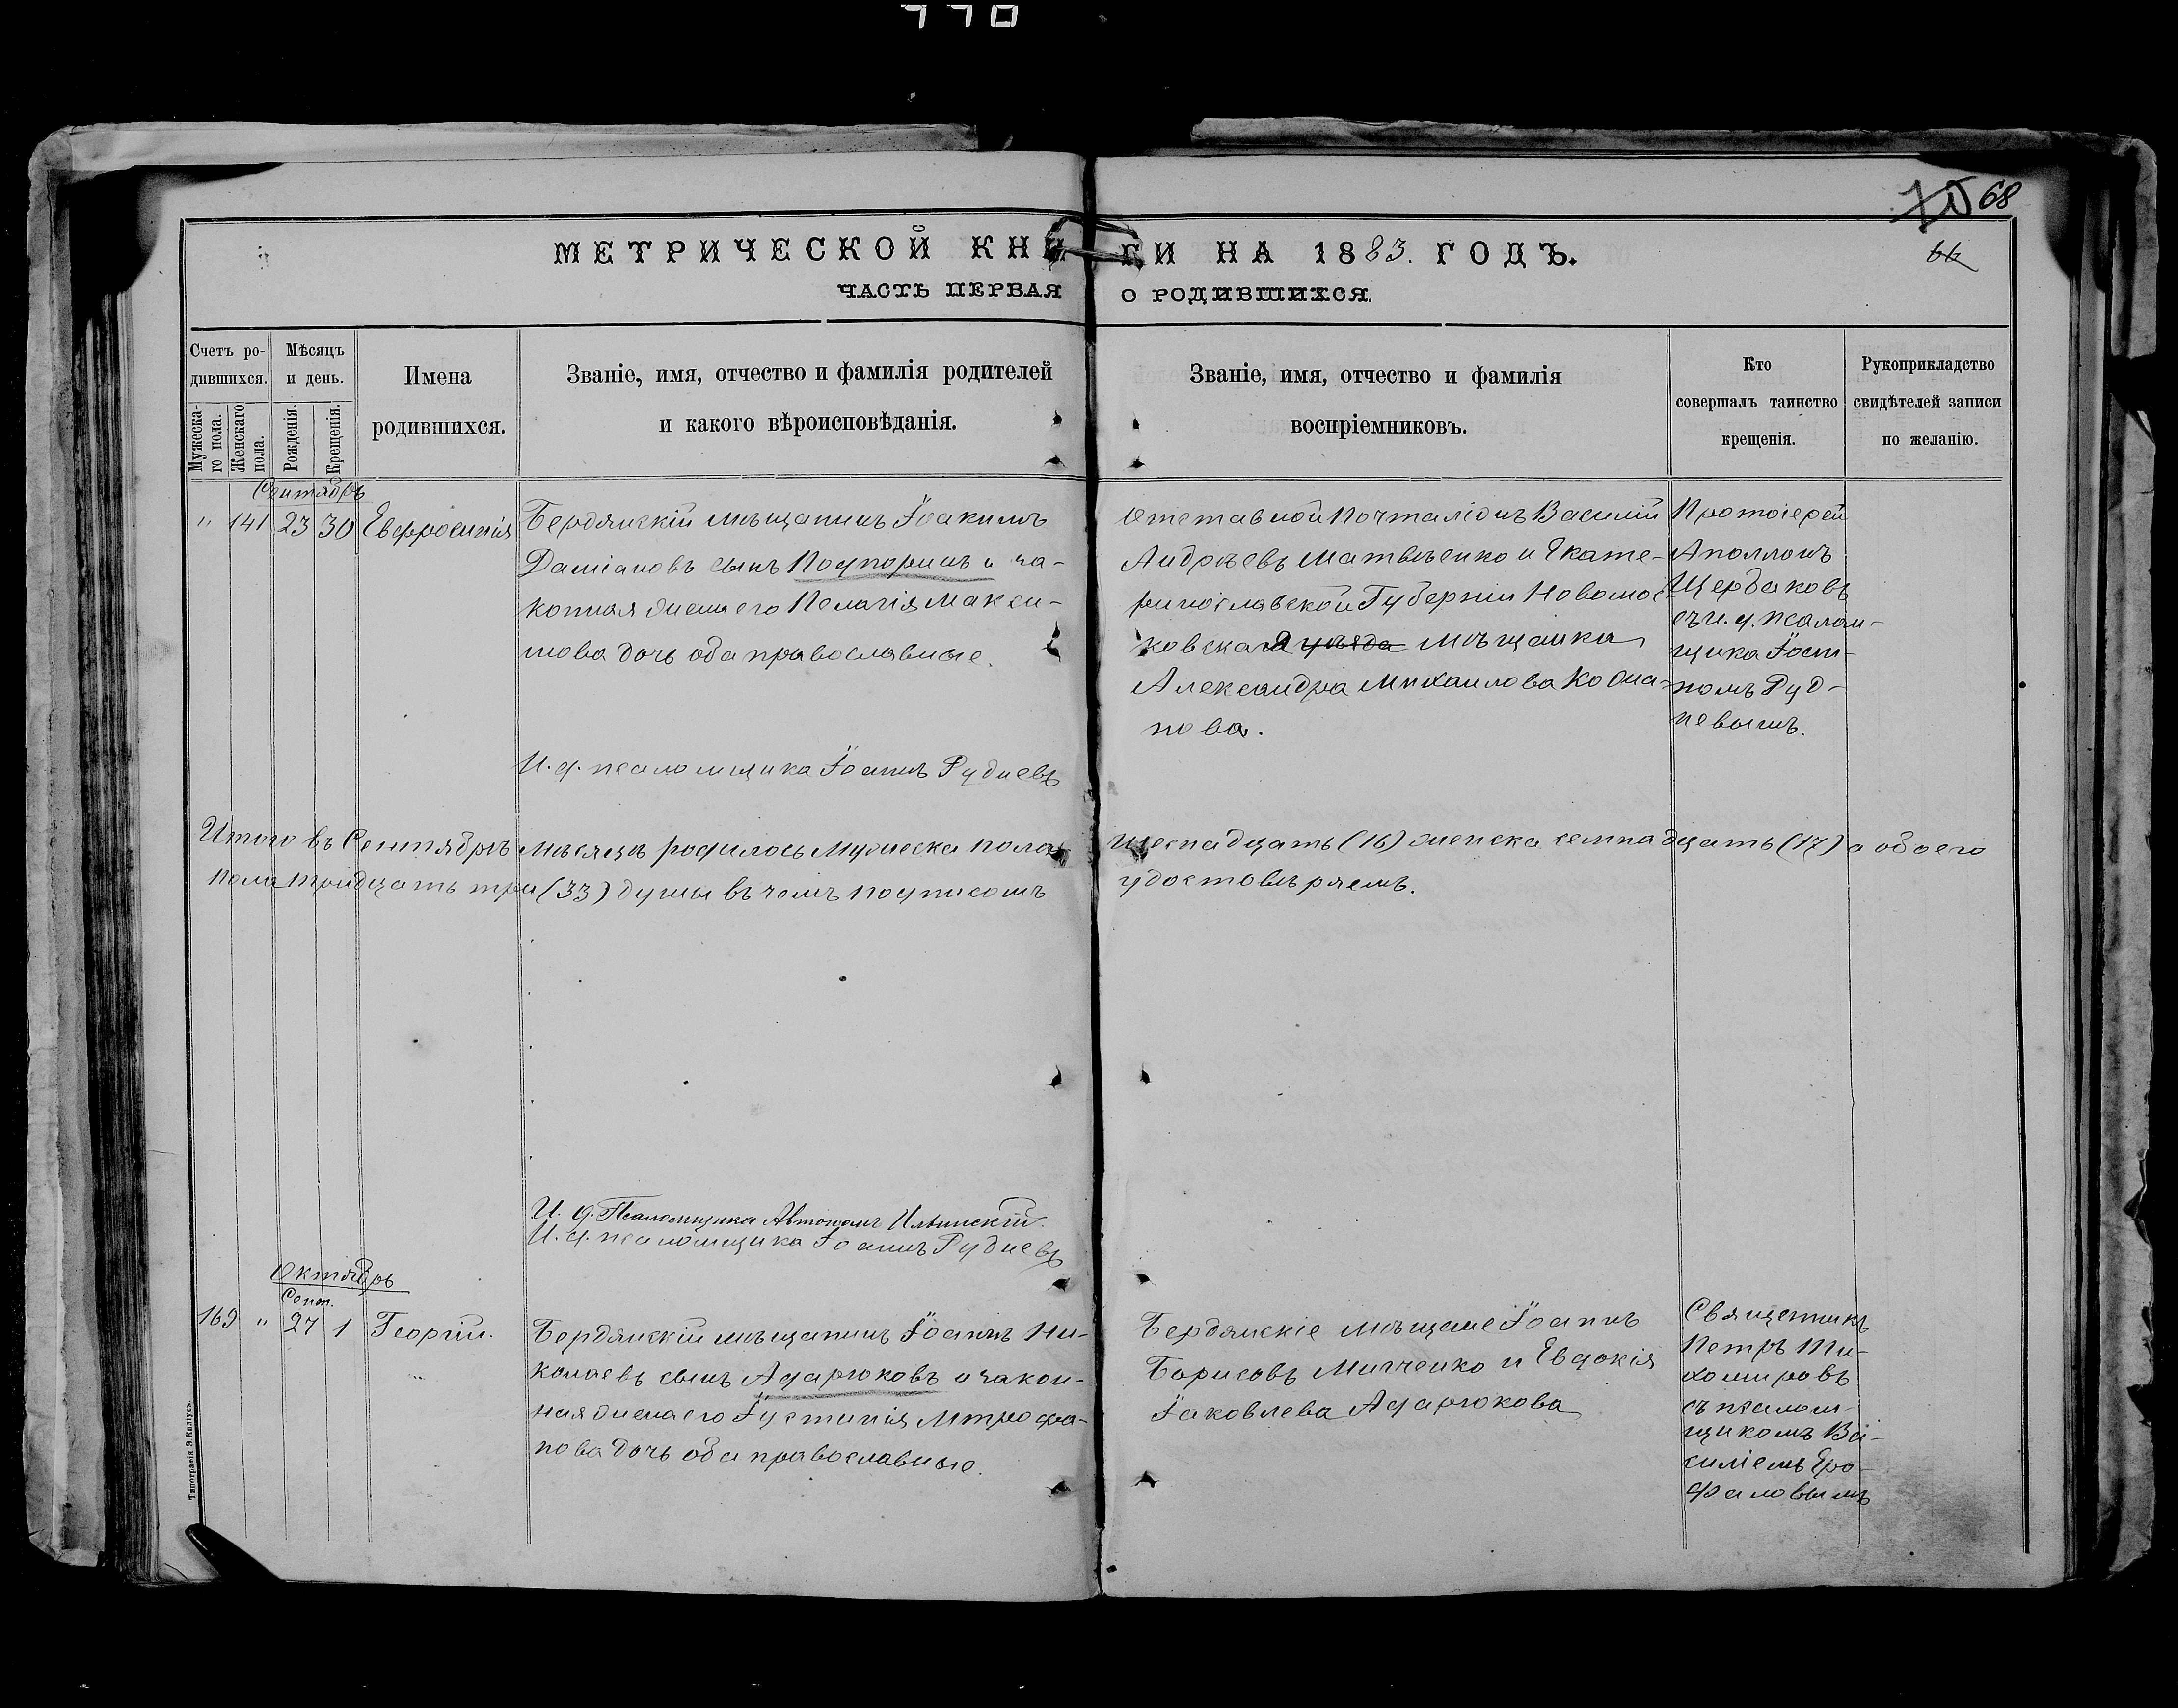 770
68
66
МЕТРИЧЕСКОЙ КНИГИ НА 1883. ГОДЪ.
ЧАСТЬ ПЕРВАЯ О РОДИВШИХСЯ.
Счетъ ро-
дившихся.
Мужеска-
го пола.
Женскаго
пола.
Мѣсяцъ
и день.
Рожденія.
Крещенія.
Имена
родившихся.
Званіе, имя, отчество и фамилія родителей
и какого вѣроисповѣданія.
Званіе, имя, отчество и фамилія
воспріемниковъ.
Кто
совершалъ таинство
крещенія.
Рукоприкладство
свидѣтелей записи
по желанію.
Сентябрь
" 141 23 30 Евфросинія
Бердянскій мѣщанинъ Іоакимъ
Даміановъ сынъ Подпоринъ и за-
конная жена его Пелагія Макси-
мова дочь оба православные.
Отставной Почталіонъ Василій
Андрѣевъ Матвѣенко и Екате-
ринославской Губерніи Новомос-
ковская уѣзда мѣщанка
Александра Михаилова
нова.
Протоіерей
Аполлонъ
Щербаковъ
съ и. д. псалом-
щика Іоан-
номъ Руд-
невымъ.
И. д. псаломщика Іоаннъ Рудневъ
Итого въ Сентябрѣ мѣсяцѣ родилось Мужеска пола шеснадцать (16) женска семнадцать (17) а обоего
пола тридцать три (33) души въ чемъ подписомъ удостовѣряемъ.
И. д. Псаломщика Автономъ Ильинскій.
И. д. псаломщика Іоаннъ Рудневъ
Октябрь
Сент.
169 " 27 1 Георгій.
Бердянскій мѣщанинъ Іоаннъ Ни-
колаевъ сынъ Адарюковъ и закон-
ная жена его Іустинія Митрофа-
нова дочь оба православные.
Бердянскіе мѣщане Іоаннъ
Борисовъ Минченко и Евдокія
Іаковлева Адарюкова
Священникъ
Петръ Ти-
хомировъ
съ псалом-
щикомъ Ва-
силіемъ Еро-
фаловымъ
Типографія Э. Килиусъ.